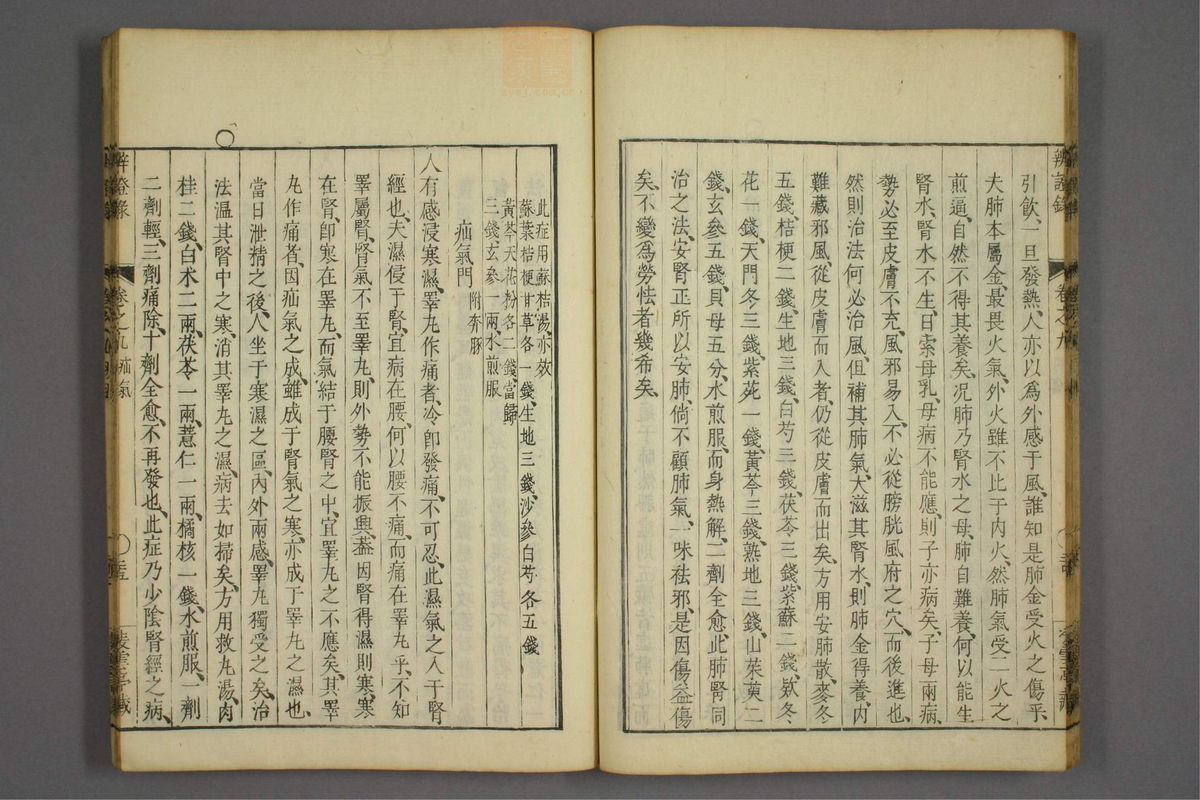 引飲、一旦發熱、人亦以爲外感于風、誰知是肺金受火之傷乎、
夫肺本屬金、最畏火氣、外火雖不比于内火、然肺氣受二火之
煎逼、自然不得其養矣、况肺乃腎水之母、肺自難養、何以能生
腎水、腎水不生、日索母乳、母病不能應、則子亦病矣、子母兩病、
勢必至皮膚不充、風邪易入、不必從膀胱風府之穴、而後進也、
然則治法何必治風、但補其肺氣、大滋其腎水、則肺金得養、内
難藏邪風、從皮膚而入者、仍從皮膚而出矣、方用安肺散、麥冬
五錢、桔梗二錢、生地三錢、白芍三錢、茯苓三錢、紫蘇二錢、欵冬
花一錢、天門冬三錢、紫菀一錢、黃芩三錢、熟地三錢、山茱萸二
錢、玄參五錢、貝母五分、水煎服、而身熱解、二劑全愈、此肺腎同
治之法、安腎正所以安肺、倘不顧肺氣、一味祛邪、是因傷益傷
矣、不變爲勞怯者幾希矣、
此症用蘇桔湯、亦效
蘇葉桔梗甘草各一錢、生地三錢、沙參白芍各五錢
黃芩天花粉各二錢、當歸
三錢玄參一兩、水煎服
疝氣門 附奔豚
人有感浸寒濕、睪丸作痛者、冷卽發痛、不可忍、此濕氣之入于腎
經也、夫濕侵于腎、宜病在腰、何以腰不痛、而痛在睪丸乎、不知
睪屬腎、腎氣不至睪丸、則外勢不能振興、葢因腎得濕則寒、寒
在腎、卽寒在睪丸、而氣結于腰腎之中、宜睪丸之不應矣、其睪
丸作痛者、因疝氣之成、雖成于腎氣之寒、亦成于睪丸之濕也、
當日泄精之後、人坐于寒濕之區、内外兩感、睪丸獨受之矣、治
法溫其腎中之寒、消其睪丸之濕、病去如掃矣、方用救丸湯、肉
桂二錢、白术二兩、茯苓一兩、薏仁一兩、橘核一錢、水煎服、一劑
二劑輕、三劑痛除、十劑全愈、不再發也、此症乃少陰腎經之病、
辨證錄
卷之九 疝氣